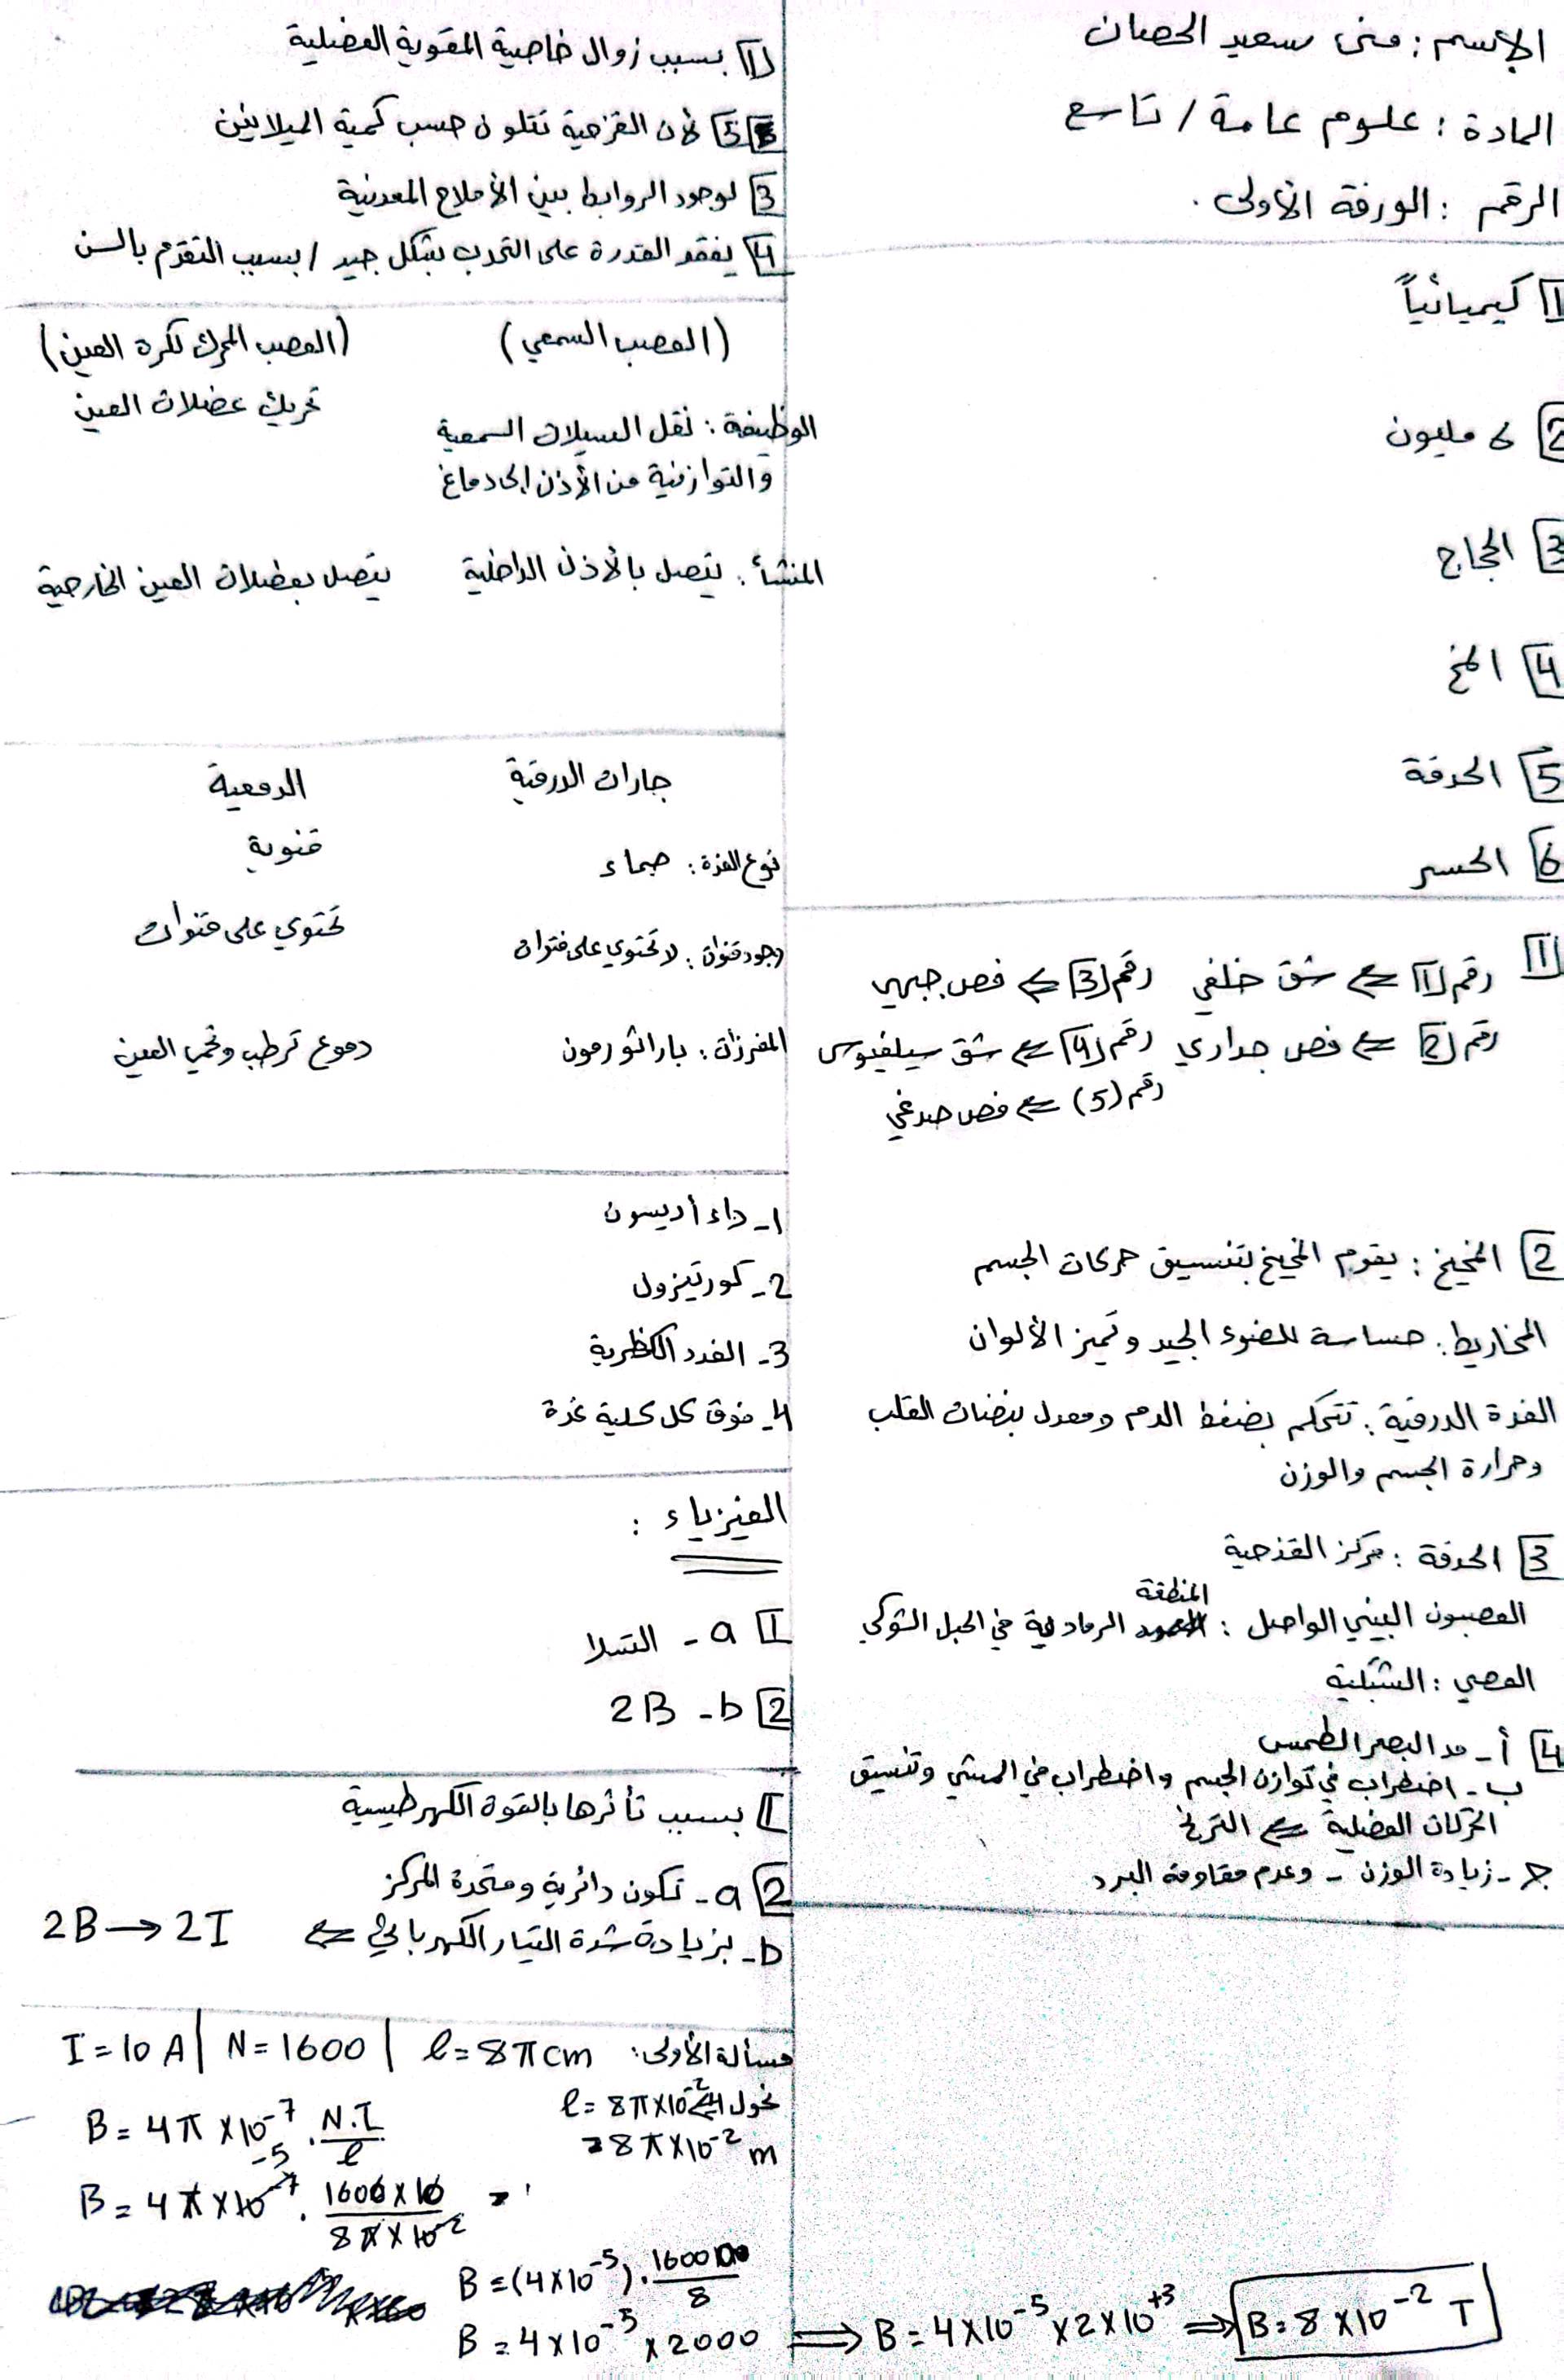 الإسم : منى سعيد الحصان
المادة : علوم عامة / تاسع
الرقم : الورقة الأولى .
1 كيميائياً
2 ٦ مليون
3 الحجاج
4 المخ
5 الحدقة
6 الحسر
1 رقم 1 ⇐ شق خلفي رقم 3 ⇐ فص جبهي
رقم 2 ⇐ فص جداري رقم 4 ⇐ شق سيلفيوس
رقم (5) ⇐ فص صدغي
2 المخيخ : يقوم المخيخ بتنسيق حركات الجسم
المخاريط : حساسة للضوء الجيد وتميز الألوان
الغدة الدرقية : تتحكم بضغط الدم ومعدل نبضات القلب
وحرارة الجسم والوزن
3 الحدقة : مركز القذحية
العصبون البيني الواصل : المنطقة الرمادية في الحبل الشوكي
العصي : الشبكية
4 أ - مد البصر الطمس
ب - اضطراب في توازن الجسم واضطراب في المشي وتنسيق
الحركات العضلية ⇐ الترنح
جـ - زيادة الوزن - وعدم مقاومة البرد
1 بسبب زوال خاصية المقوية العضلية
5 لأن القزحية تتلون حسب كمية الميلانين
3 لوجود الروابط بين الأملاح المعدنية
4 يفقد القدرة على التحدب بشكل جيد / بسبب التقدم بالسن
(العصب السمعي) (العصب المحرك لكرة العين)
الوظيفة : نقل السيالات السمعية تحريك عضلات العين
والتوازنية من الأذن إلى دماغ
المنشأ : يتصل بالأذن الداخلية يتصل بعضلات العين الخارجية
جارات الدرقية الدمعية
نوع الغدة : صماء قنوية
وجود قنوات : لا تحتوي على قنوات تحتوي على قنوات
المفرزات : باراثورمون دموع ترطب وتحمي العين
1- داء أديسون
2- كورتيزول
3- الغدد الكظرية
4- فوق كل كلية غدة
الفيزياء :
1 a - التسلا
2 b - 2B
1 بسبب تأثرها بالقوة الكهرطيسية
2 a - تكون دائرية ومتحدة المركز
b - بزيادة شدة التيار الكهربائي ⇐ 2B → 2I
مسألة الأولى: I = 10 A | N = 1600 | l = 8π cm
نحول l = 8π×10⁻²
= 8π×10⁻² m
B = 4π × 10⁻⁷ . N.I / l
B = 4π × 10⁻⁷ . 1600 × 10 / 8π × 10⁻² =
-5
B = (4×10⁻⁵) . 16000 / 8
B = 4×10⁻⁵ × 2000 ⟹ B = 4×10⁻⁵ × 2×10⁺³ ⟹ B = 8×10⁻² T